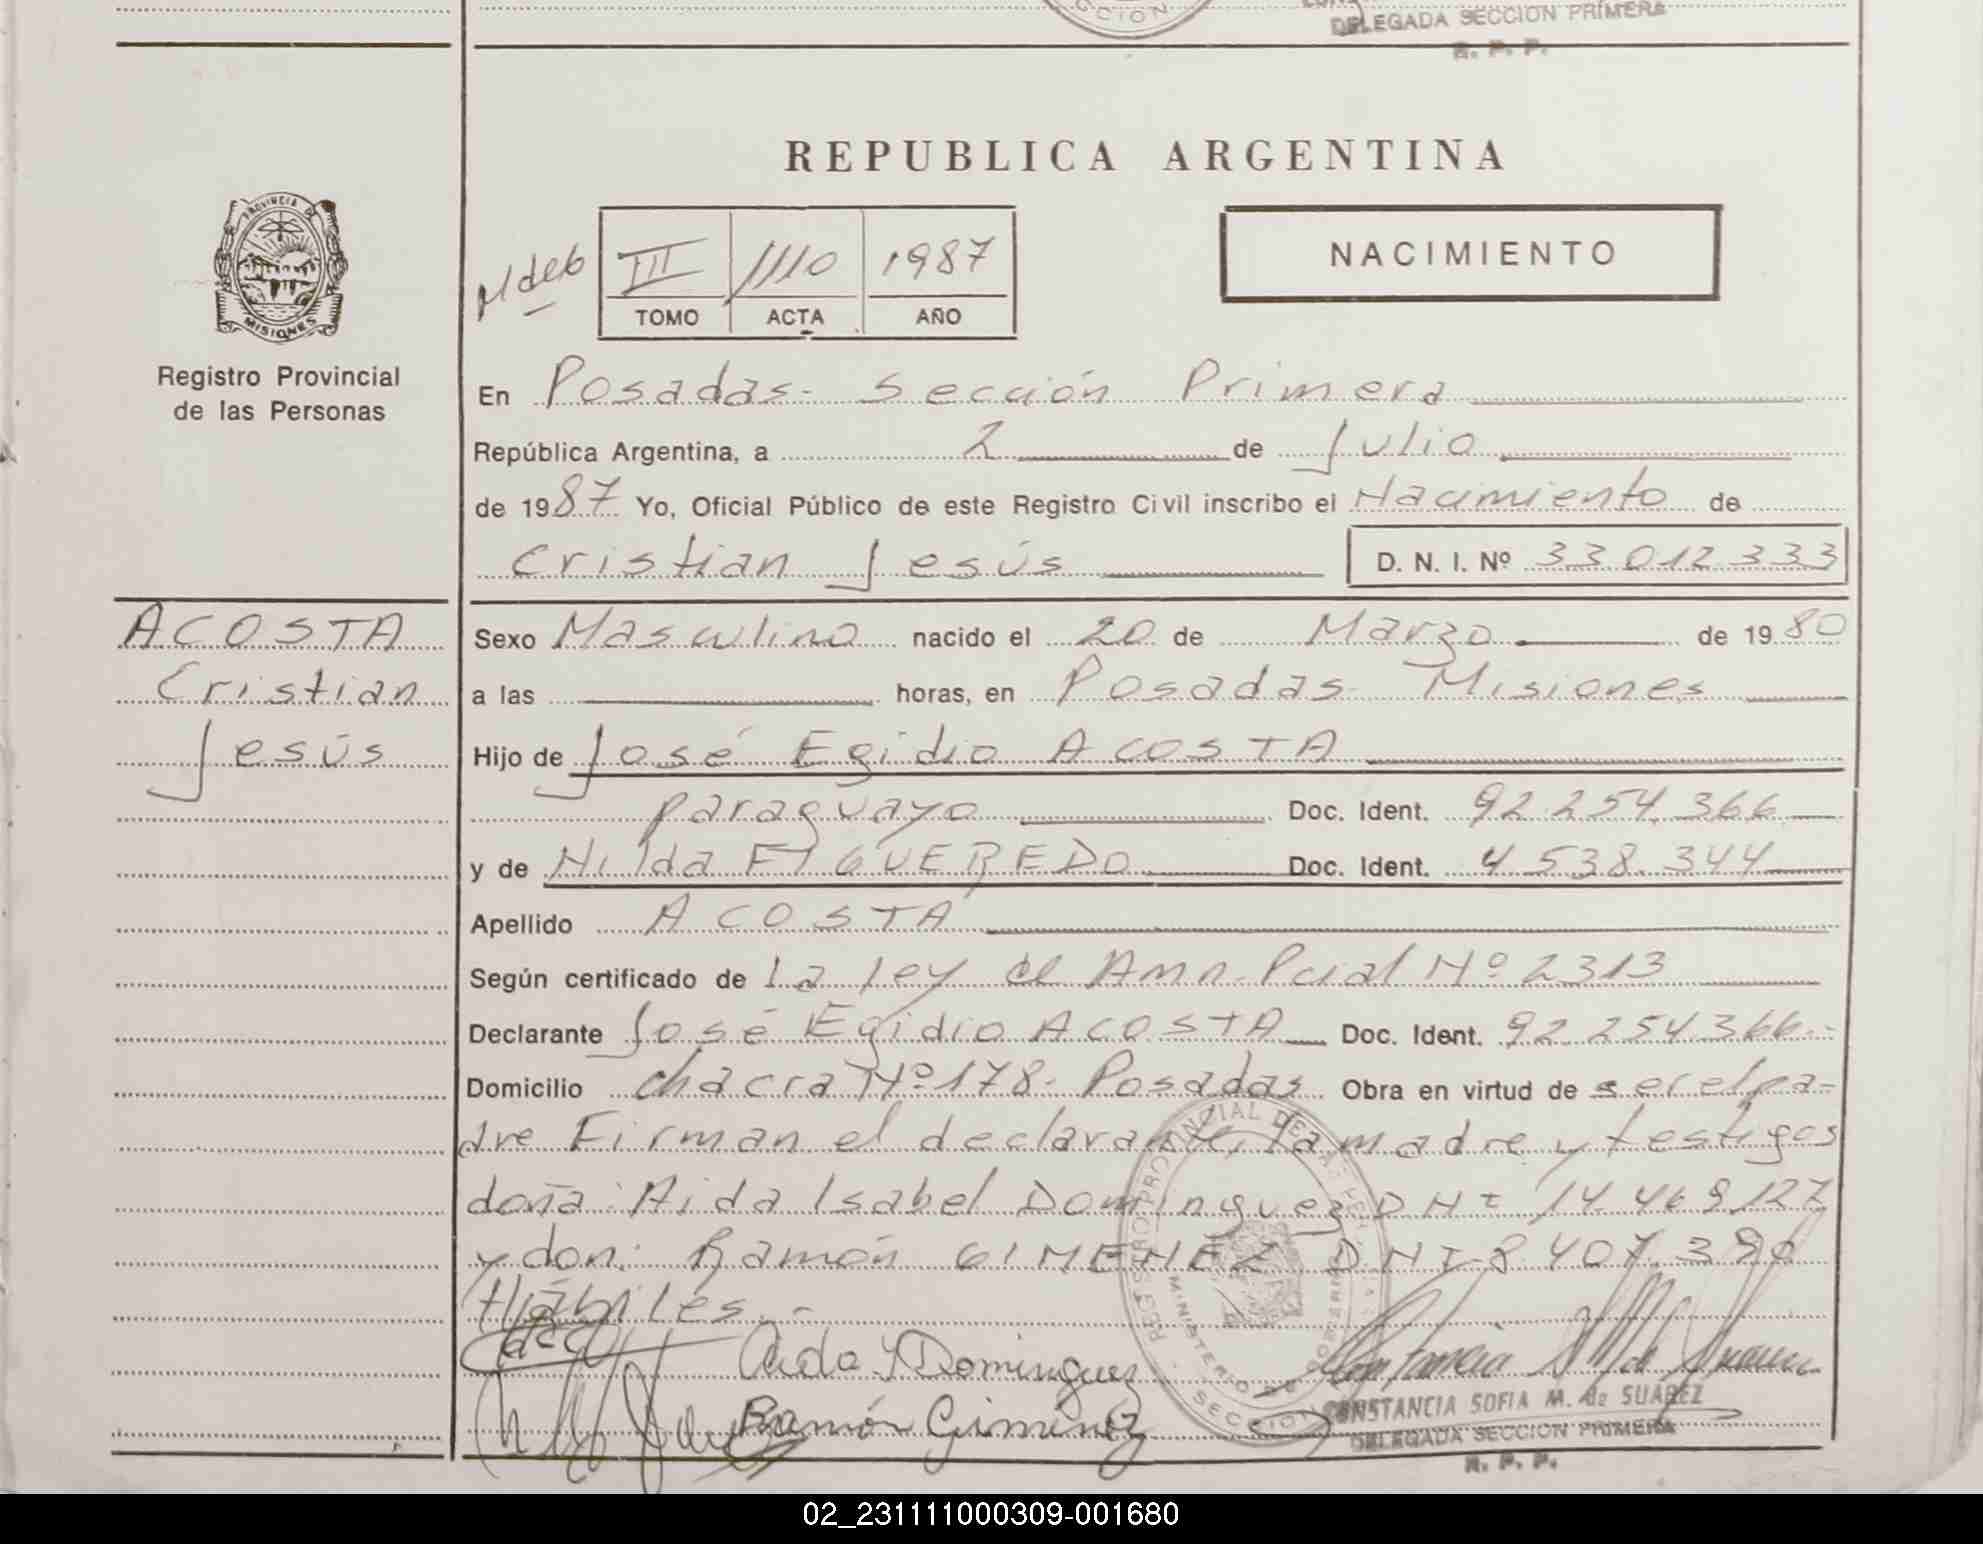 CCION
DELEGADA SECCION PRIMERA
R. P. P.
REPUBLICA ARGENTINA
PROVINCIA DE
MISIONES
Registro Provincial
de las Personas
III 1110 1987
TOMO ACTA AÑO
NACIMIENTO
En Posadas- Sección Primera
República Argentina, a 2 de Julio
de 1987 Yo, Oficial Público de este Registro Civil inscribo el Nacimiento de
Cristian Jesús D. N. I. Nº 33 012 333
ACOSTA
Cristian
Jesús
Sexo Masculino nacido el 20 de Marzo de 1980
a las horas, en Posadas- Misiones
Hijo de José Egidio ACOSTA
paraguayo Doc. Ident. 92.254.366
y de Hilda FIGUEREDO Doc. Ident. 4.538.344
Apellido ACOSTA
Según certificado de la ley de Amn. Pcial Nº 2313
Declarante José Egidio ACOSTA Doc. Ident. 92.254.366.-
Domicilio chacra Nº 178- Posadas Obra en virtud de ser el pa-
dre Firman el declarante, la madre y testigos
doña: Aida Isabel Dominguez DNI 14.469.127
y don: Ramón GIMENEZ DNI 8.407.390
Hábiles.-
Aida Y Dominguez
Ramón Gimenez
CONSTANCIA SOFIA M. de SUAREZ
DELEGADA SECCION PRIMERA
R. P. P.
02_231111000309-001680